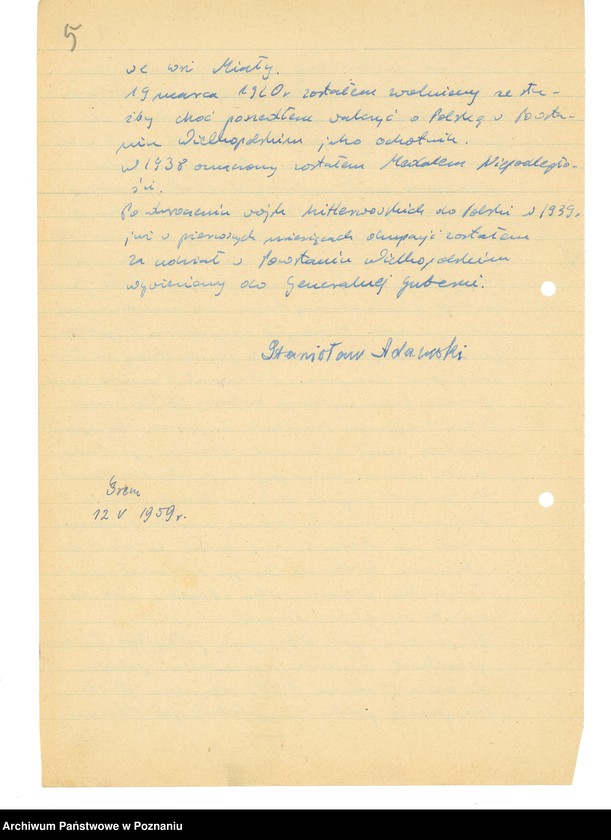 5
we wsi Miały.
19 marca 1920r zostałem zwolniony ze słu-
żby choć poszedłem walczyć o Polskę w Powsta-
niu Wielkopolskim jako ochotnik.
w 1938 oznaczony zostałem Medalem Niepodległo-
ści.
Po wkroczeniu wojsk hitlerowskich do Polski w 1939r
już w pierwszych miesiącach okupacji zostałem
za udział w Powstaniu Wielkopolskim
wywieziony do Generalnej Guberni.
Stanisław Adamski
Śrem
12 V 1959r.
Archiwum Państwowe w Poznaniu